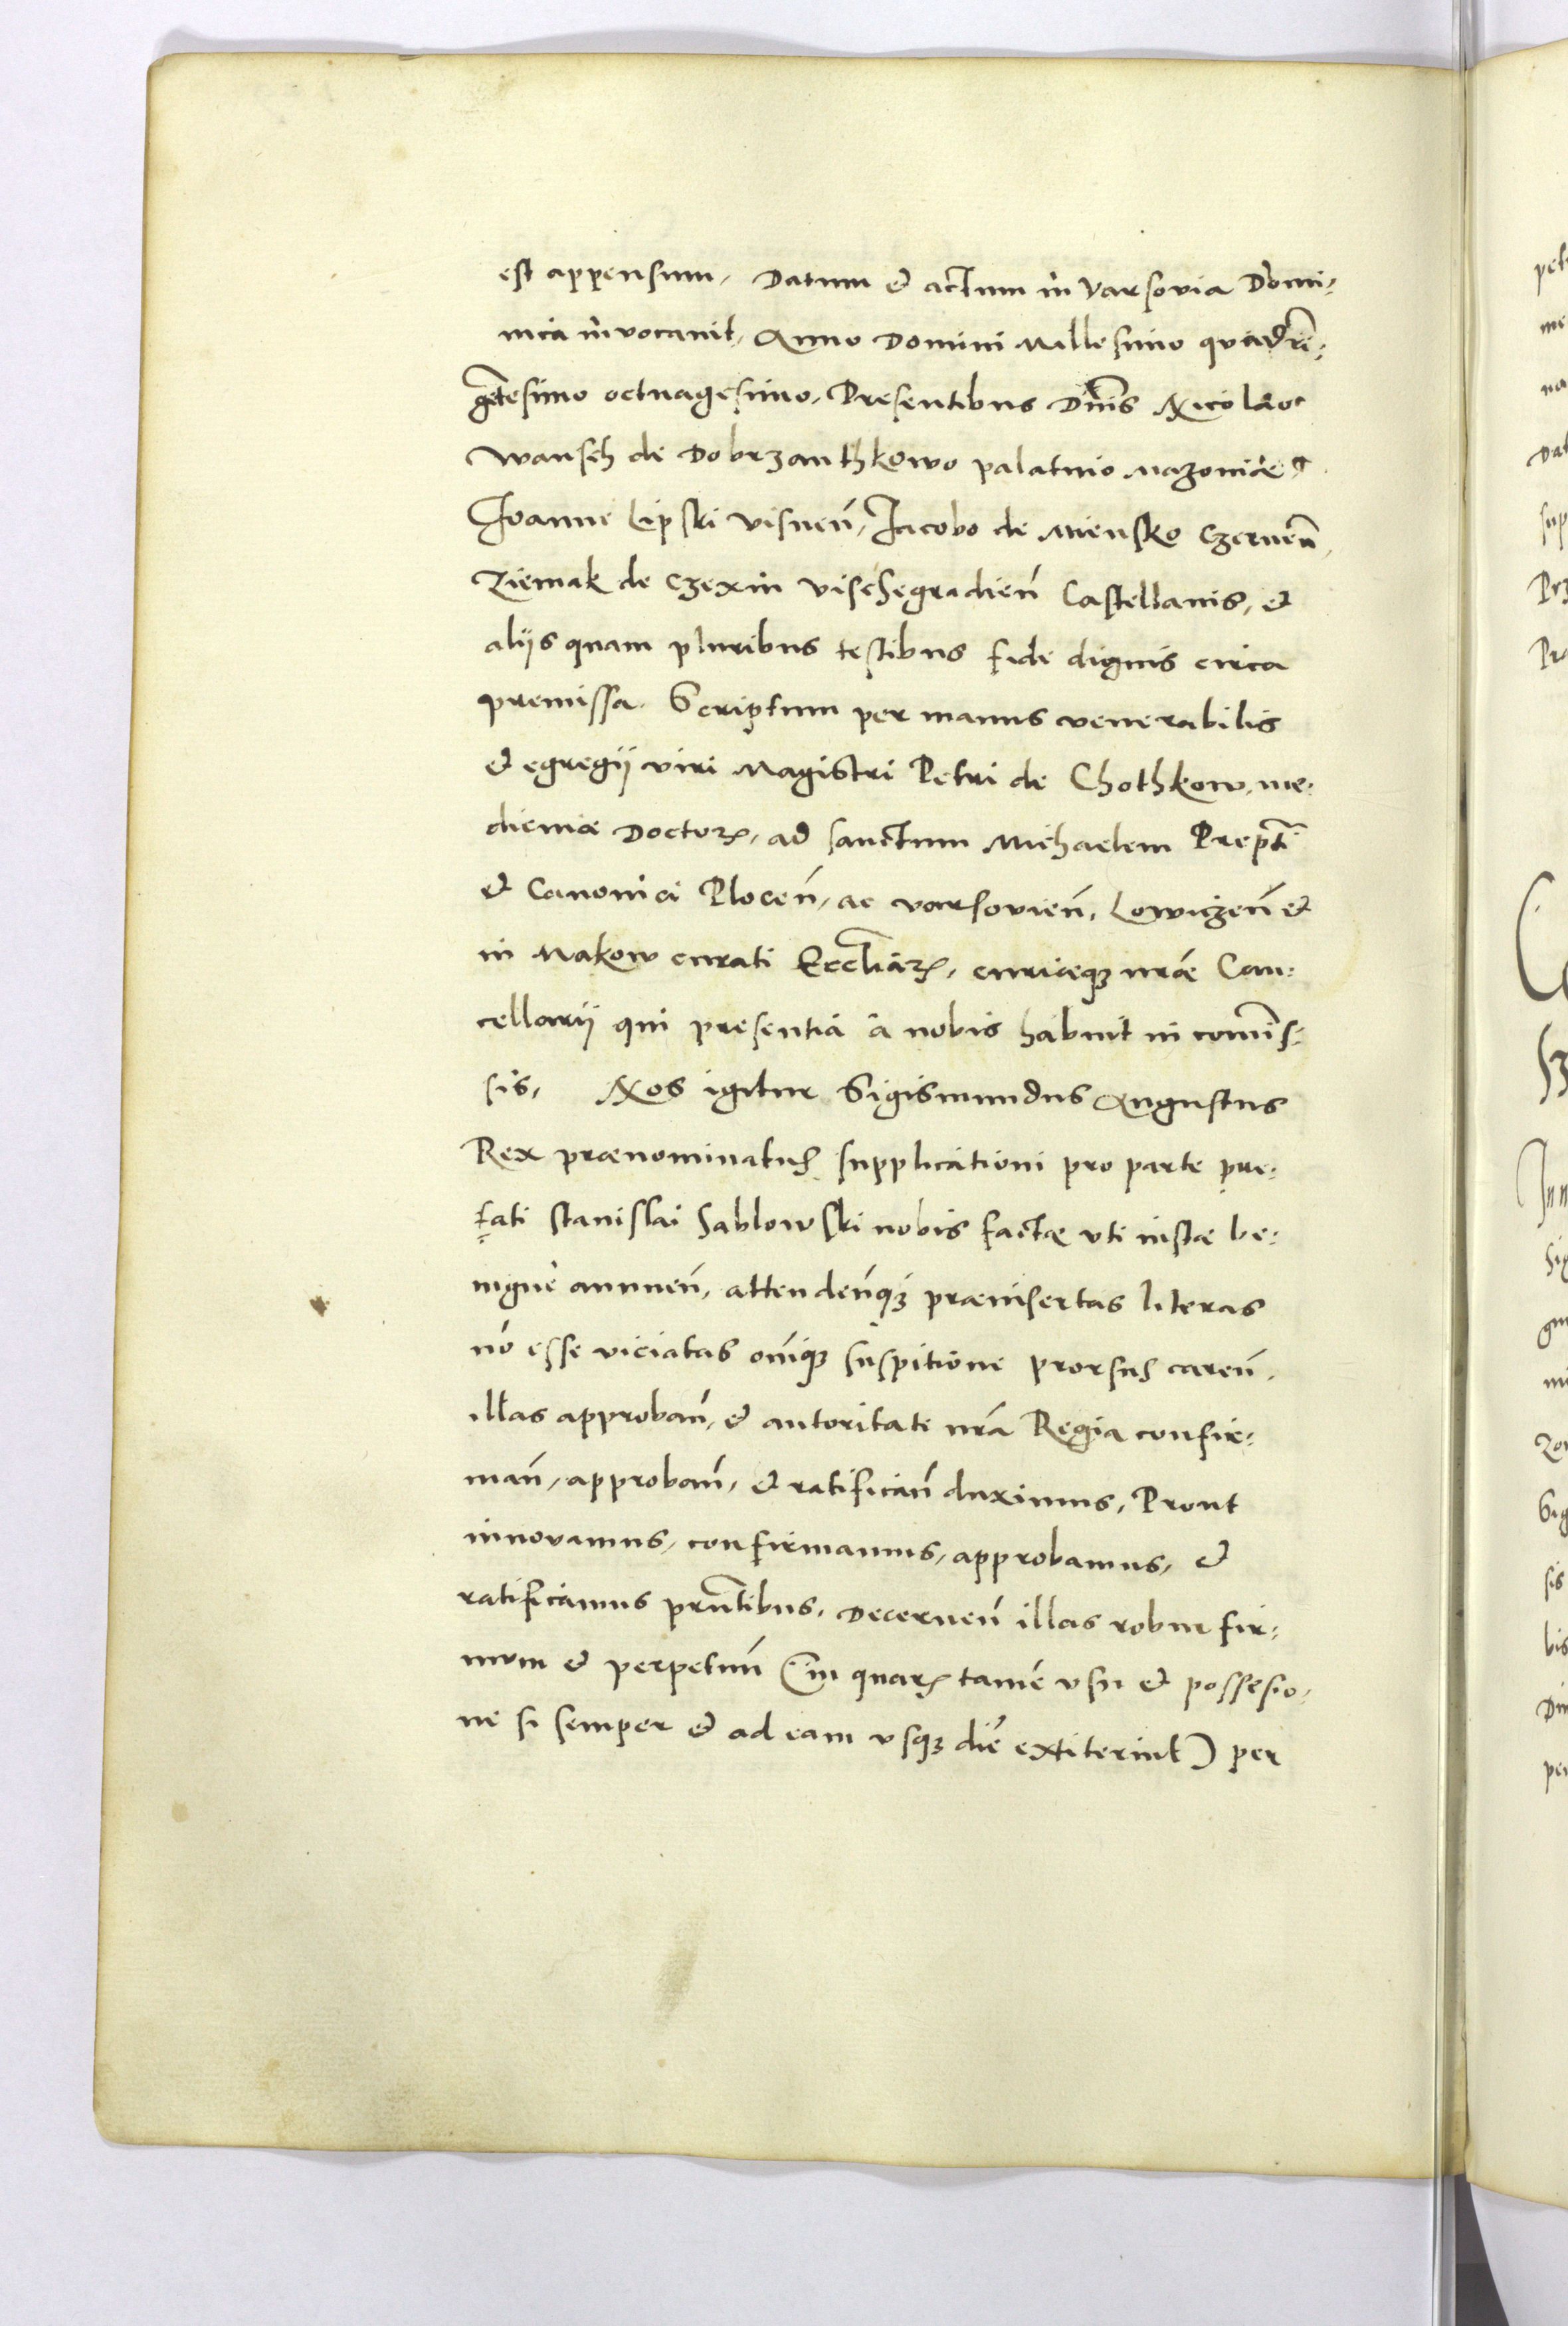 est appensum, Datum et actum in Varsovia Domi:
nica invocavit, Anno Domini Millesimo quadrin:
gētesimo octuagesimo, Presentibus Dn̄is Nicolao
Wansch de Dobrzanthkowo palatino Mazoviæ,
Joanne Lipski Visnen̄, Jacobo de Miensko Czernen̄,
Ziemak de Czexin Vischegradien̄ Castellanis, et
alijs quam pluribus testibus fide dignis circa
premissa. Scriptum per manus venerabilis
et egregij viri Magistri Petri de Chothkow, me:
dicinæ Doctorꝝ, ad sanctum Michaelem Prepti
et Canonici Plocen̄, ac Varsovien̄, Lowiczen̄ et
in Makow curati Eccl̄iarꝝ, curiæqꝫ nr̄æ Can:
cellarij qui presentia à nobis habuit in com̄is:
sis, Nos igitur Sigismundus Augustus
Rex prænominatus supplicationi pro parte præ:
fati Stanislai Sablowski nobis factæ uti iustæ be:
nignè annuen̄, attendēn̄qꝫ præinsertas literas
nō esse viciatas om̄iqꝫ suspitione prorsus caren̄,
illas approban̄, et autoritate nr̄a Regia confir:
man̄, approban̄, et ratifican̄ duximus, Prout
innovamus, confirmamus, approbamus, et
ratificamus prn̄tibus, Decernen̄ illas robur fir:
mum et perpetuū (in quarꝝ tamē usu et possesio:
ne si semper et ad eam usqꝫ diē extiterint) per